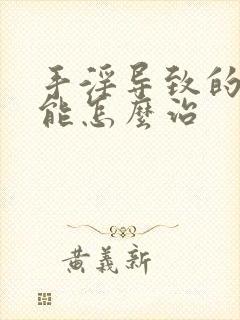 手淫导致的
能怎麼治
黄義新